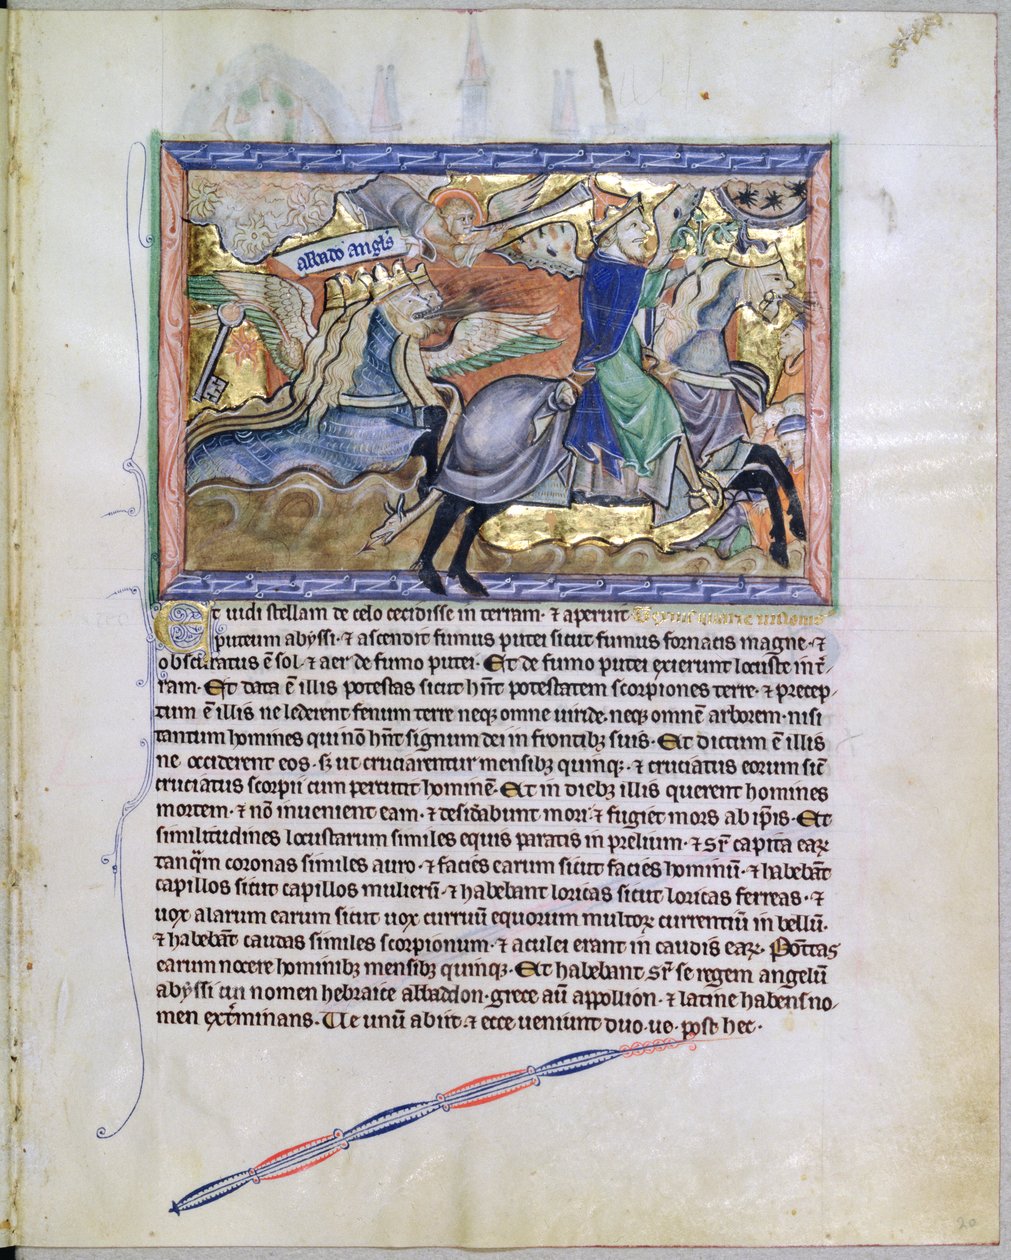 abbado angl's
Et uidi stellam de celo cecidisse in terram· ⁊ aperuit
puteum abyssi· ⁊ ascendit fumus putei sicut fumus fornacis magne· ⁊
obscuratus ē sol· ⁊ aer de fumo putei· Et de fumo putei exierunt locuste in t̄r
ram· Et data ē illis potestas sicut hn̄t potestatem scorpiones terre· ⁊ precep
tum ē illis ne lederent fenum terre neqꝫ omne uiride· neqꝫ omnē arborem· nisi
tantum homines qui nō hn̄t signum dei in frontibꝫ suis· Et dictum ē illis
ne occiderent eos· sꝫ ut cruciarentur mensibꝫ quinqꝫ· ⁊ cruciatus eorum sic̄
cruciatus scorpii cum percutit hominē· Et in diebꝫ illis querent homines
mortem· ⁊ nō inuenient eam· ⁊ desid'abunt mori· ⁊ fugiet mors ab ip̄is· Et
similitudines locustarum similes equis paratis in prelium· ⁊ sr̄ capita eaꝝ
tanq̄m coronas similes auro· ⁊ facies earum sicut facies hominū· ⁊ habebāt
capillos sicut capillos mulierū· ⁊ habebant loricas sicut loricas ferreas· ⁊
uox alarum earum sicut uox curruū equorum multoꝝ currentiū in bellū·
⁊ habebāt caudas similes scorpionum· ⁊ aculei erant in caudis eaꝝ· Pot̄tas
earum nocere hominibꝫ mensibꝫ quinqꝫ· Et habebant sr̄ se regem angelū
abyssi cui nomen hebraice abbadon· grece aū appollion· ⁊ latine habens no
men ext'minans· Ue unū abiit· ⁊ ecce ueniunt duo· ue· post hec·
20